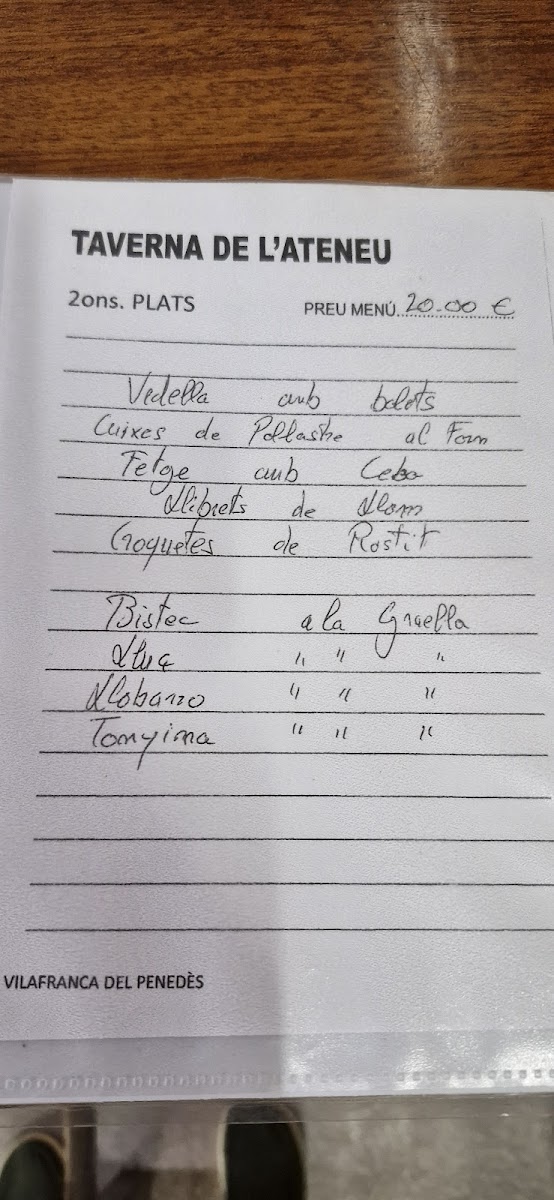 TAVERNA DE L'ATENEU
2ons. PLATS PREU MENÚ 20.00 €
Vedella amb bolets
Cuixes de Pollastre al Forn
Fetge amb Ceba
Llibrets de Llom
Croquetes de Rostit
Bistec a la Graella
Lluç " " "
Llobarro " " "
Tonyina " " "
VILAFRANCA DEL PENEDÈS